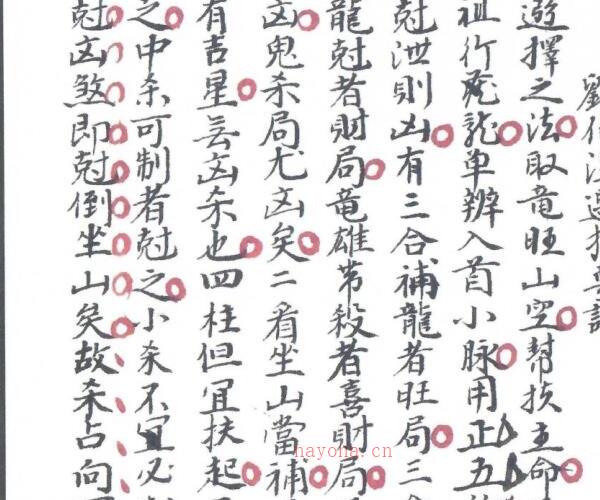 劉伯
選擇之法取竜旺山空幫扶主命
祖行龍單辨入首小脉用正五
尅泄則凶有三合補龍者旺局三
龍尅者財局竜雄帶殺者喜財局
凶鬼杀局尤凶矣二看坐山當補
有吉星無凶杀也四柱但宜扶起
之中杀可制者尅之小杀不宜必
尅凶煞即尅倒坐山矣故杀占向
hayoha.cn